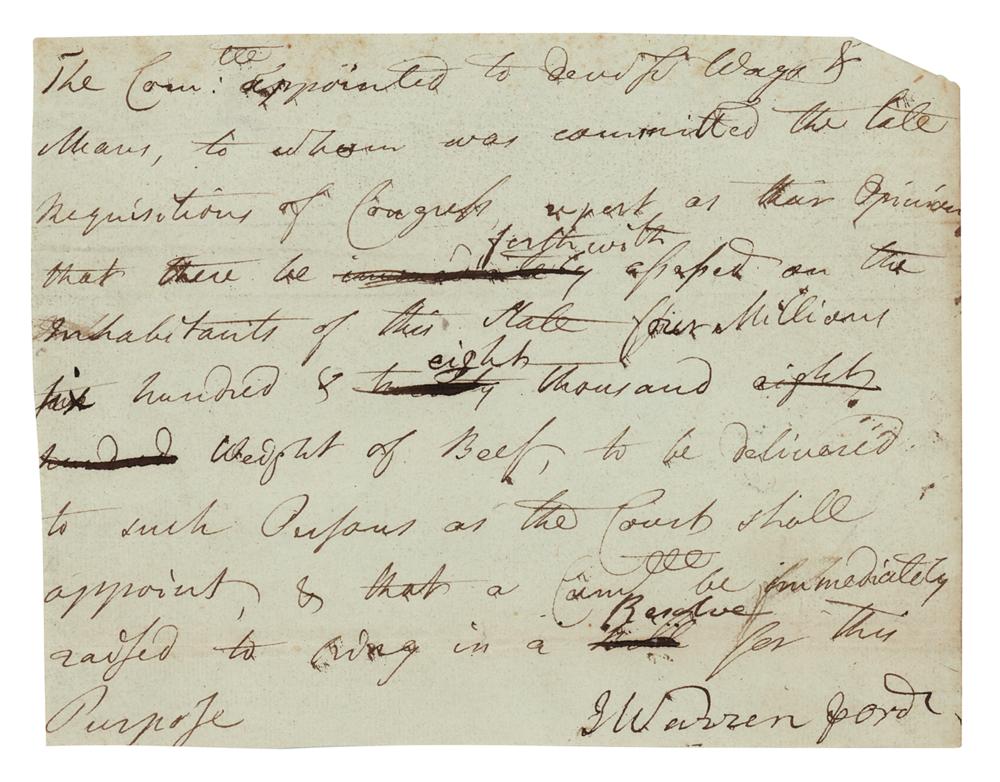 The Com:ttee appointed to devise Ways &
Means, to whom was committed the late
Requisitions of Congress, report as their Opinion
forthwith
that there be immediately assessed on the
Inhabitants of this State four Millions
eight
six hundred & twenty thousand eight
hundred Weight of Beef, to be delivered
to such Persons as the Court shall
appoint, & that a Comttee be immediately
Resolve
raised to bring in a bill for this
Purpose
J Warren p ordr